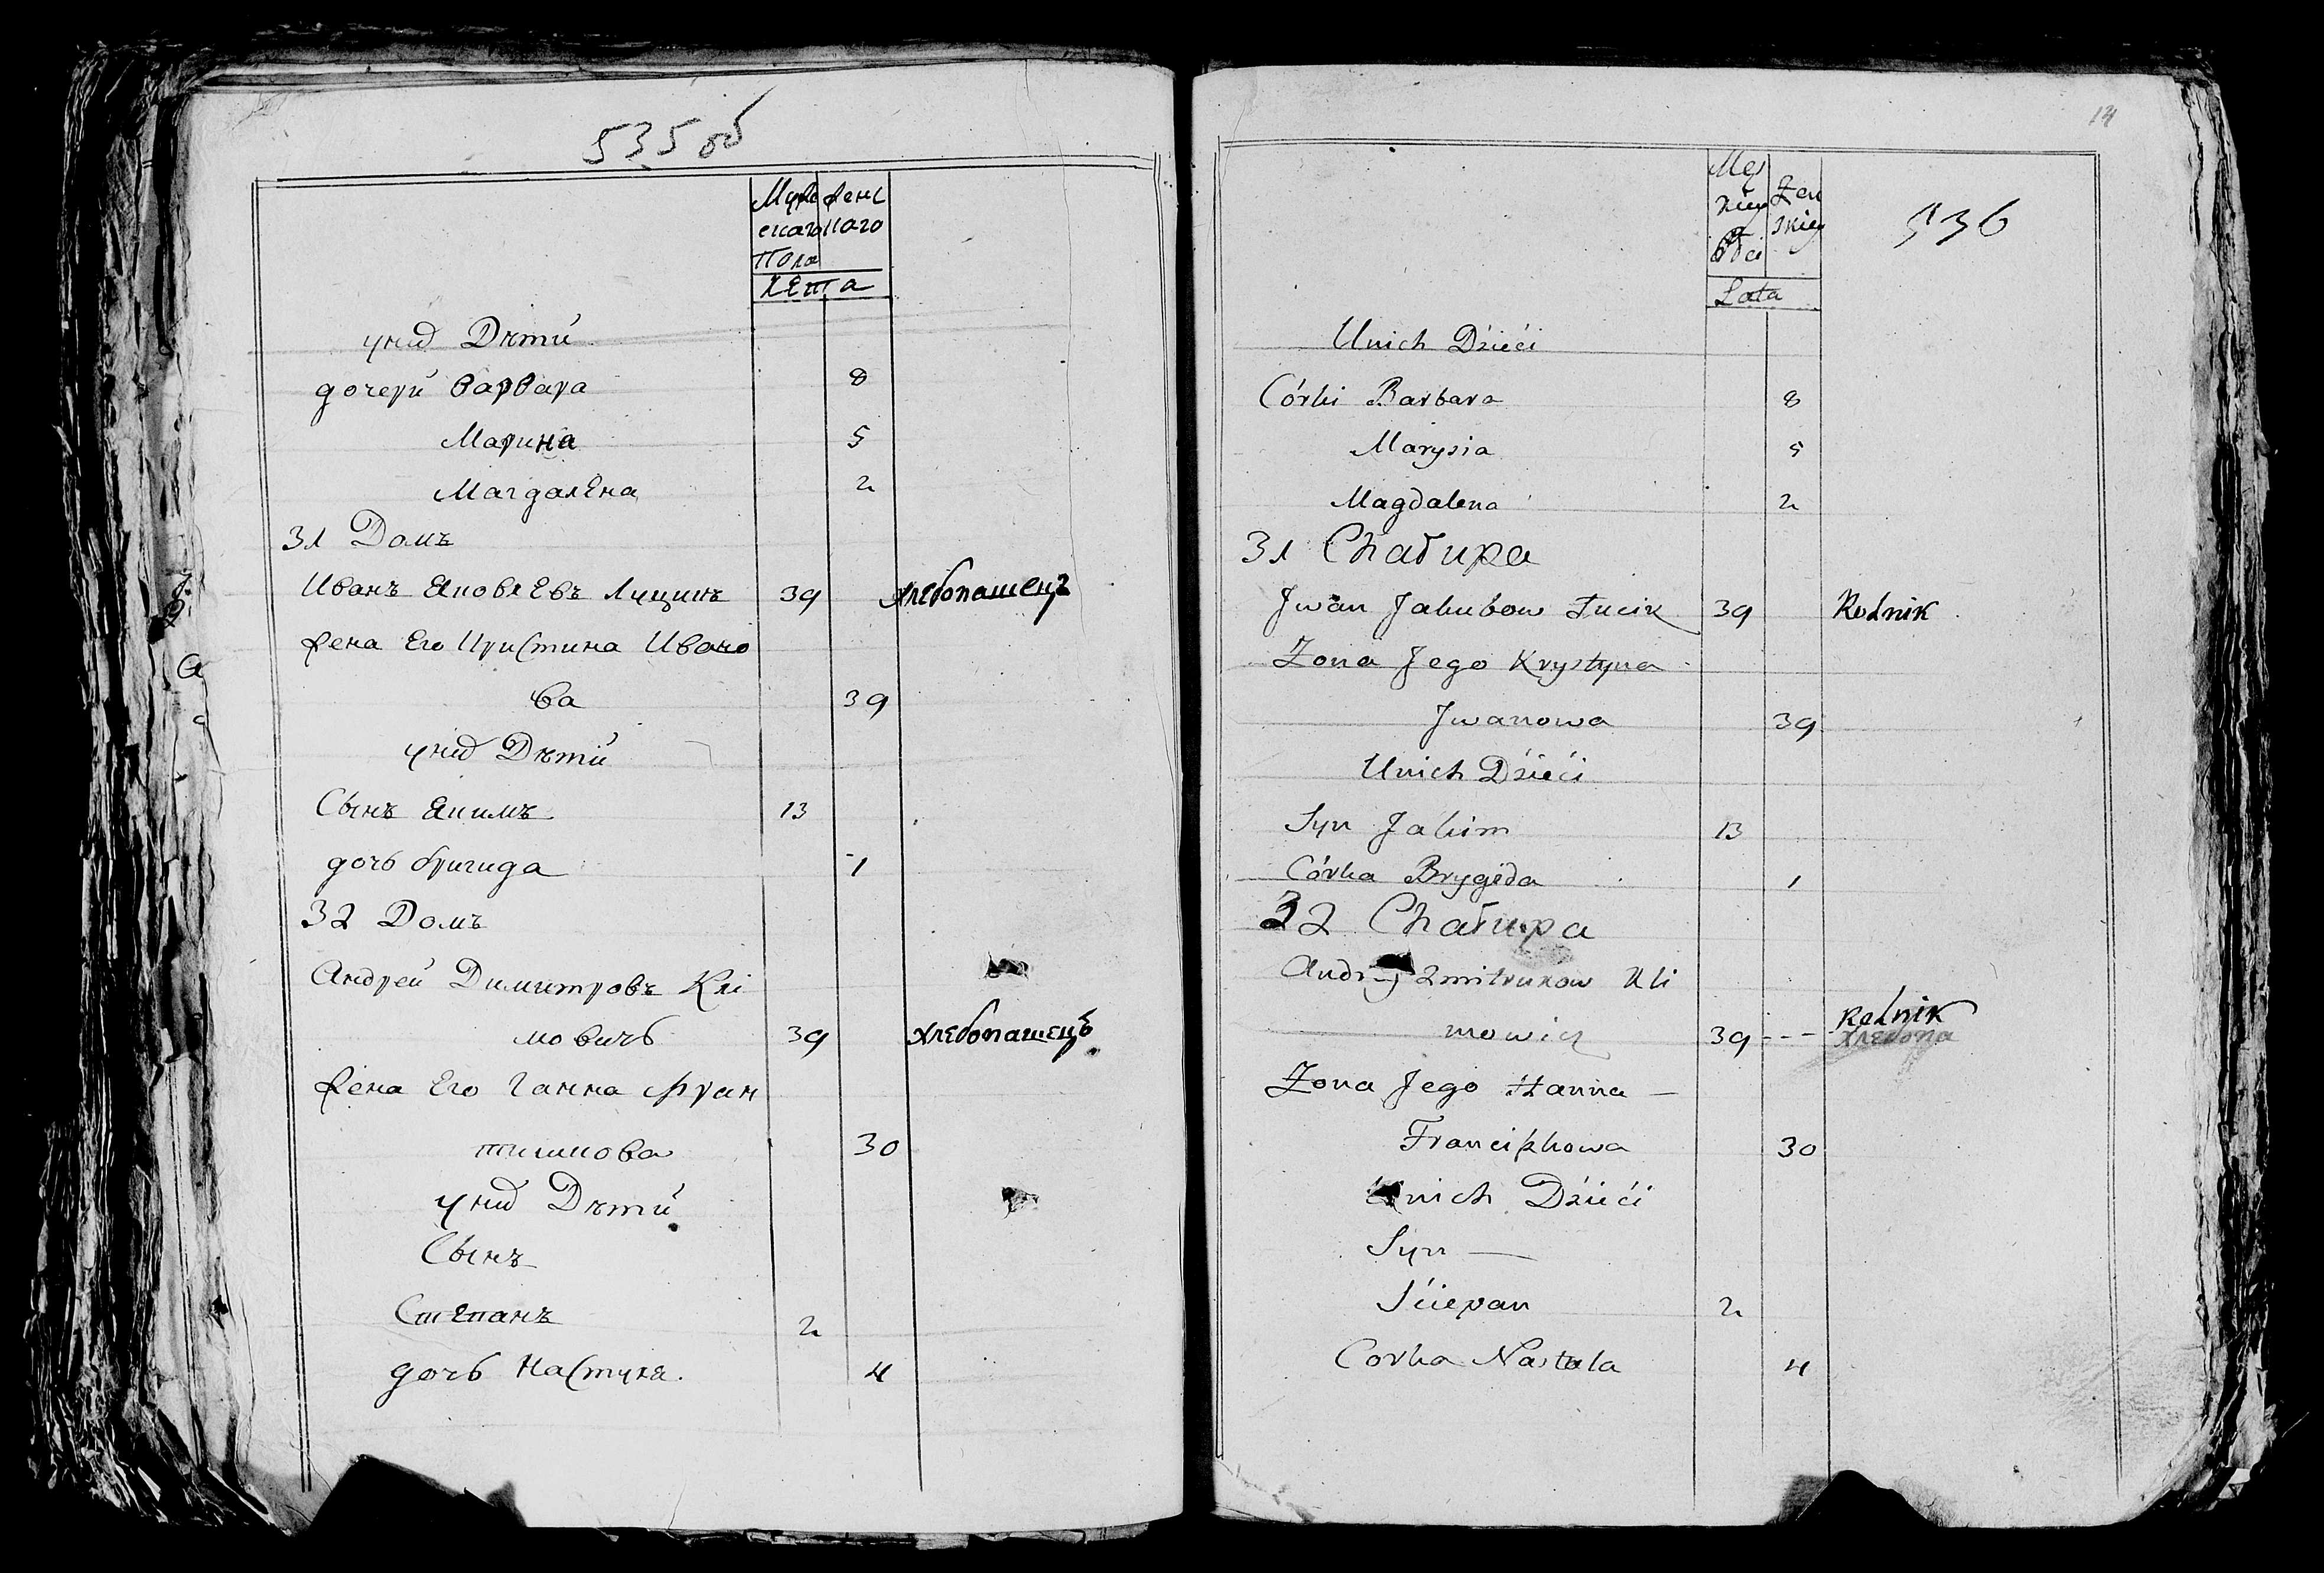 535 об
Муже женс
скаго каго
Пола
лѣта
у нид Дѣти
дочери Варвара 8
Марина 5
Магдалена 2
31 Домъ
Иванъ Яковлевъ Луцикъ 39 хлебопашецъ
жена Его Кристина Ивано
ва 39
у нид Дѣти
Сынъ Якимъ 13
дочь Бригида 1
32 Домъ
Андрей Димитровъ Клі
мовичъ 39 хлебопашецъ
жена Его Ганна Фран
тишкова 30
у нид Дѣти
Сынъ
Степанъ 2
дочь Настуля. 4
14
Męs Żeń
kiey skiey
Płci
Lata
536
Unich Dzieći
Córki Barbara 8
Marysia 5
Magdalena 2
31 Chałupa
Jwan Jakubow Łucik 39 Rolnik
Żona Jego Krystyna
Jwanowa 39
Unich Dzieći
Syn Jakim 13
Córka Brygida 1
32 Chałupa
Andrzej Zmitrukow Kli
mowicz 39 --- Rolnik
хлебопа
Żona Jego Hanna —
Franciszkowa 30
Unich Dzieći
Syn —
Sćiepan 2
Corka Nastula 4